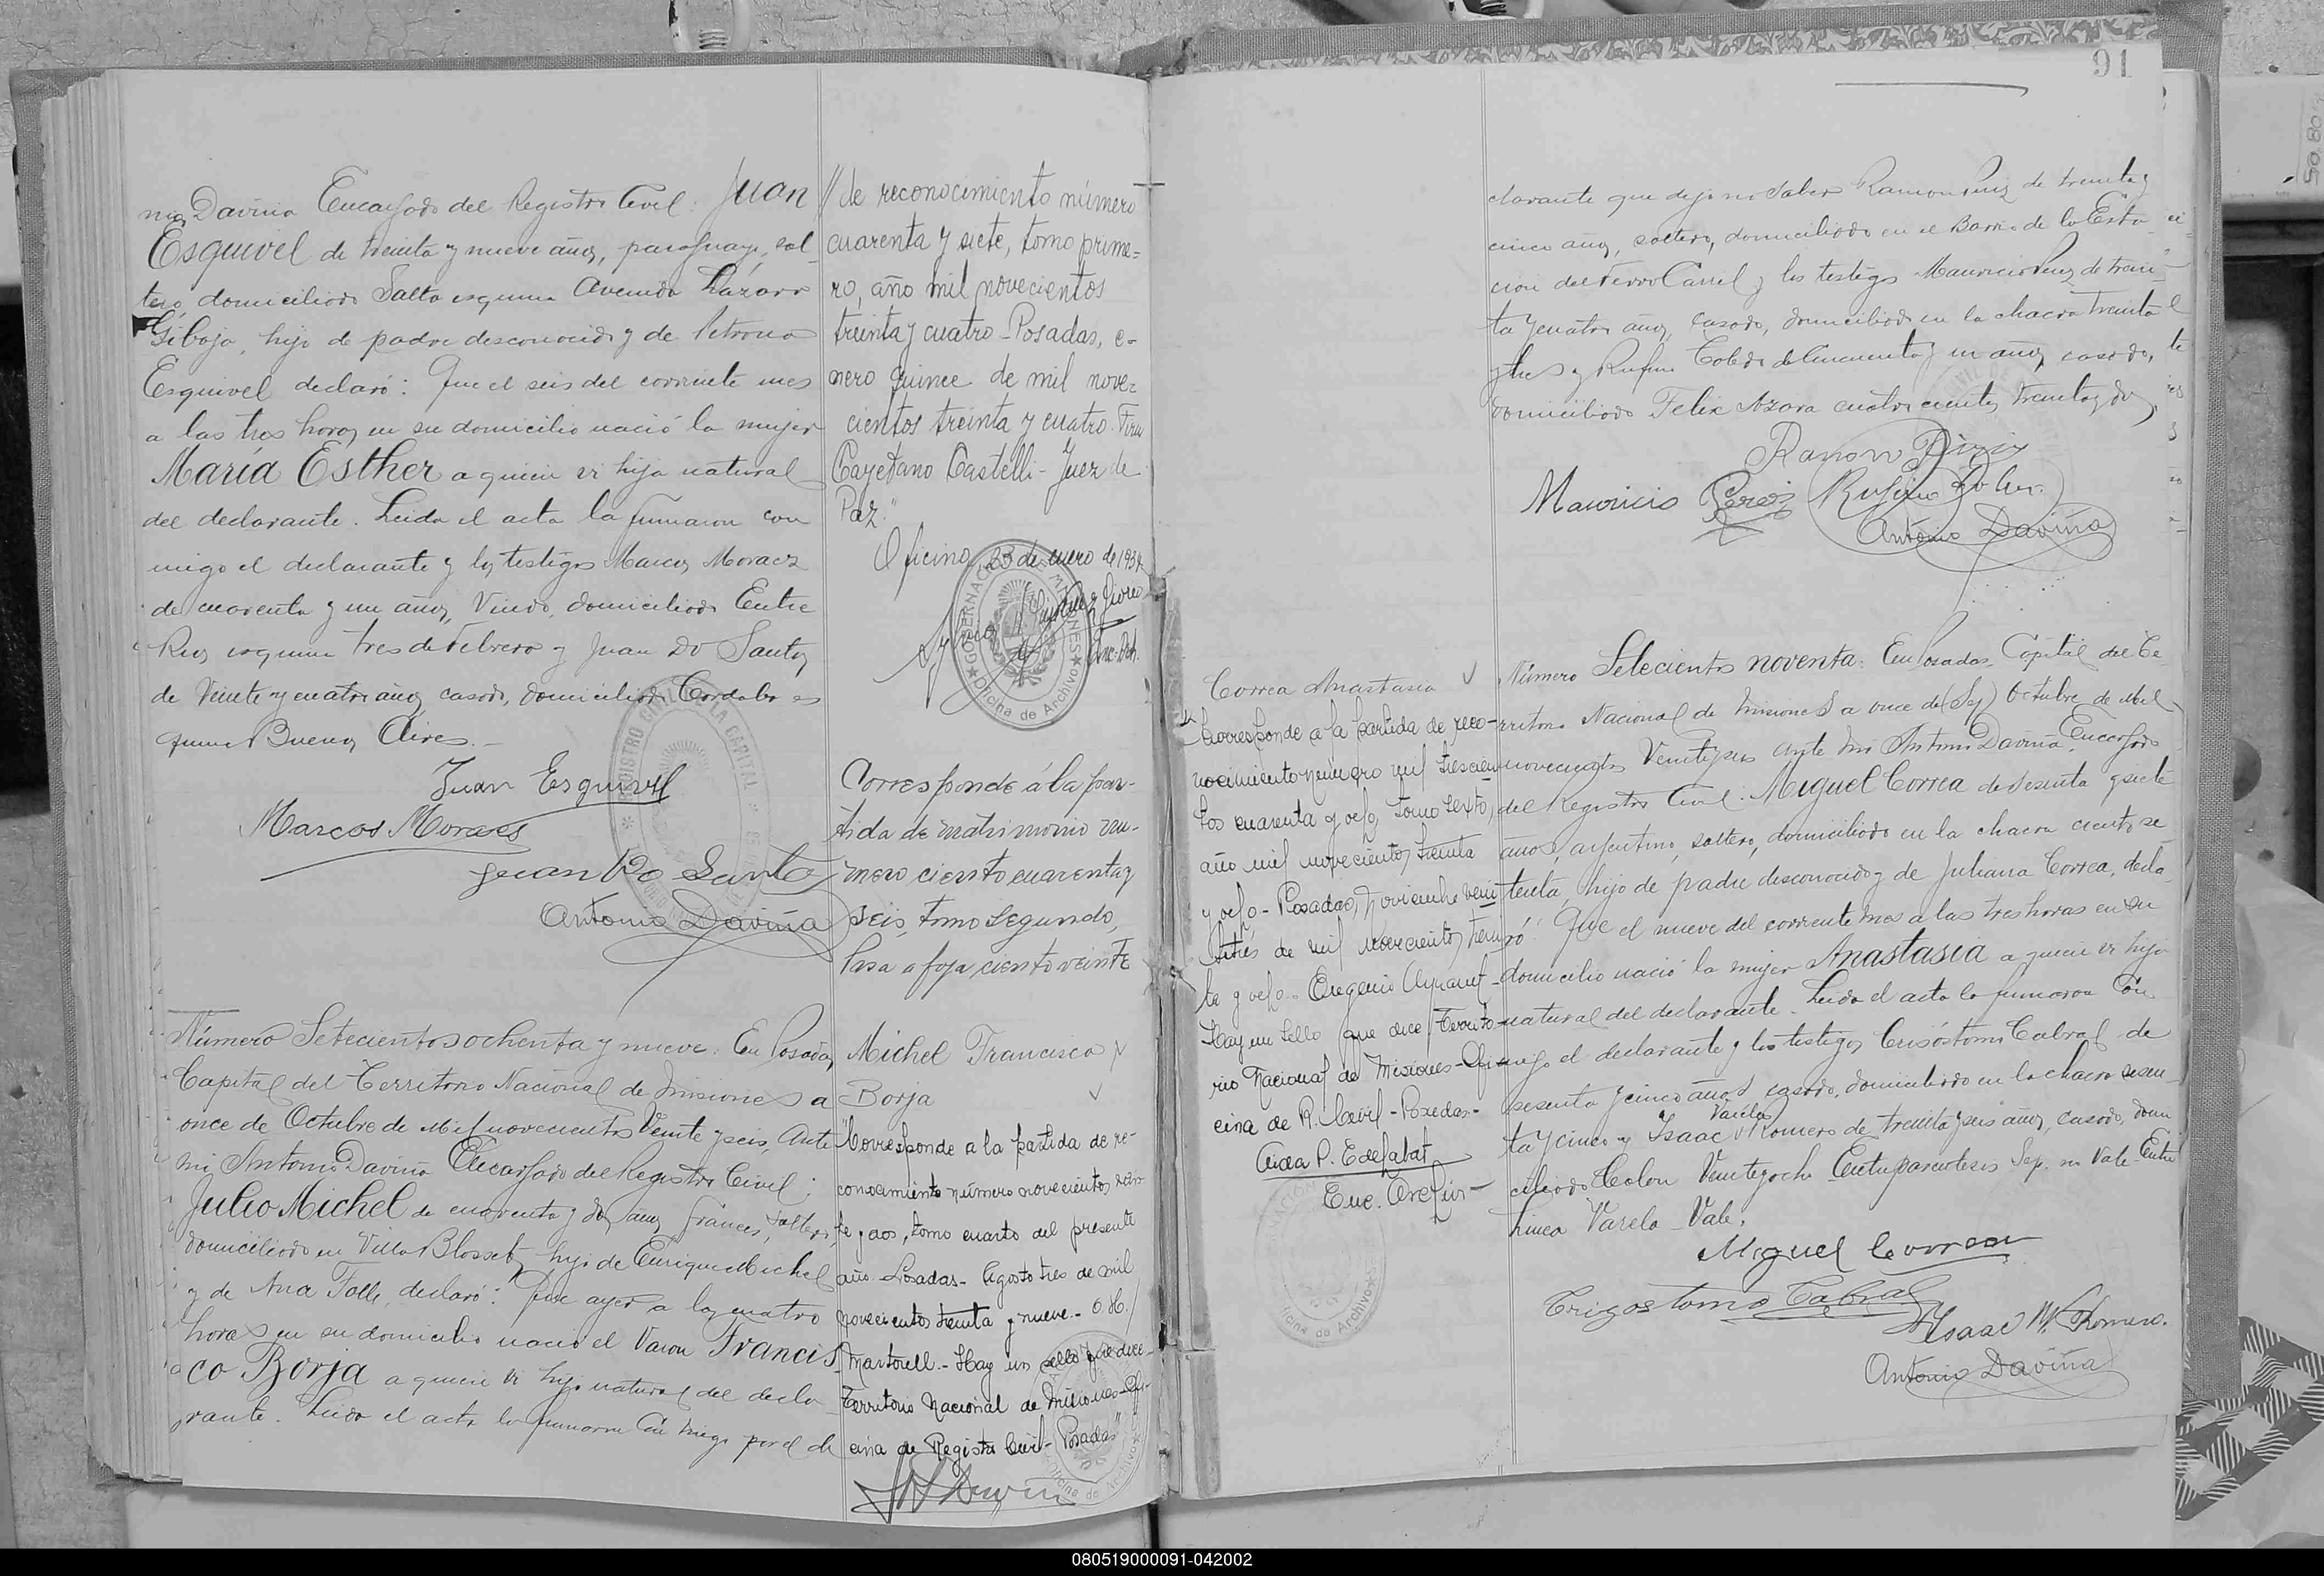 nio Daviña Encargado del Registro Civil: Juan
Esquivel de treinta y nueve años, paraguayo, sol-
tero, domiciliado Salta esquina Avenida Lázaro
Gibaja, hijo de padre desconocido y de Petrona
Esquivel declaró: Que el seis del corriente mes
a las tres horas en su domicilio nació la mujer
María Esther a quien vi hija natural
del declarante. Leida el acta la firmaron con
migo el declarante y los testigos Marcos Moraes
de cuarenta y un años, Viudo, domiciliado Entre
Rios esquina tres de Febrero y Juan Do Santos
de Veinte y cuatro años, casado, domiciliado Cordoba es
quina Buenos Aires.-
Juan Esquivel
Marcos Moraes
Juan Do Santo
Antonio Daviña
// de reconocimiento número
cuarenta y siete, tomo prime-
ro, año mil novecientos
treinta y cuatro - Posadas, e-
nero quince de mil nove-
cientos treinta y cuatro. Firm
Cayetano Castelli - Juez de
Paz."
Oficina, 23 de enero de 1934
GOBERNACION DE MISIONES
Oficina de Archivo
REGISTRO CIVIL DE LA CAPITAL
Corresponde á la par-
tida de matrimonio nu-
mero ciento cuarenta y
seis, tomo segundo,
Pasa a foja ciento veinte
Número Setecientos ochenta y nueve: En Posadas,
Capital del Territorio Nacional de Misiones a
once de Octubre de Mil novecientos Veinte y seis, Ante
mi Antonio Daviña Encargado del Registro Civil:
Julio Michel de cuarenta y dos años, frances, soltero,
domiciliado en Villa Blosset, hijo de Enrique Michel
y de Ana Falle, declaró: Que ayer a las cuatro
horas en su domicilio nació el Varon Francis
co Borja a quien vi hijo natural del decla
rante. Leida el acta la firmaron Con migo por el de
Michel Francisco
Borja
"Corresponde a la partida de re-
conocimiento número novecientos vein
te y dos, tomo cuarto del presente
año. Posadas - Agosto tres de mil
novecientos treinta y nueve. - O. H.
Martorell. - Hay un sello que dice
Territorio Nacional de Misiones - Ofi-
cina de Registro Civil - Posadas"
91
clarante que dejo no saber Ramon Ruiz de treinta y
cinco años, soltero, domiciliado en el Barrio de la Esta-
cion del Ferro Carril y los testigos Mauricio Perez de trein-
ta y cuatro años, casado, domiciliado en la chacra treinta
y tres y Rufino Toledo de Cincuenta y un años, casado,
domiciliado Felix Azara cuatrocientos treinta y dos,
Ramon Ruiz
Mauricio Perez
Antonio Daviña
Correa Anastasia
Corresponde a la partida de reco-
nocimiento número mil trescien
tos cuarenta y ocho, tomo sexto,
año mil novecientos treinta
y ocho - Posadas, noviembre vein
titres de mil novecientos trein
ta y ocho. - Eugenio
Hay un sello que dice Territo-
rio Nacional de Misiones - Ofi-
cina de R. Civil - Posadas -
Enc. Archivo
Número Setecientos noventa: En Posadas, Capital del Te-
rritorio Nacional de Misiones a once de (Sep) Octubre de Mil
novecientos Veintiseis ante mi Antonio Daviña Encargado
del Registro Civil: Miguel Correa de sesenta y siete
años, argentino, soltero, domiciliado en la chacra ciento se
tenta, hijo de padre desconocido y de Juliana Correa, decla-
ró: Que el nueve del corriente mes a las tres horas en su
domicilio nació la mujer Anastasia a quien vi hija
natural del declarante. Leida el acta la firmaron Con
migo el declarante y los testigos Crisóstomo Cabral de
sesenta y cinco años casado, domiciliado en la chacra sesen-
ta y cinco y Isaac Varela Romero de treinta y seis años, casado, domi
ciliado Colon Veinte y ocho Entreparentesis Sep. no Vale - Entre
linea Varela - Vale.
Miguel Correa
Crizostomo Cabral
Isaac V. Romero.
Antonio Daviña
080519000091-042002